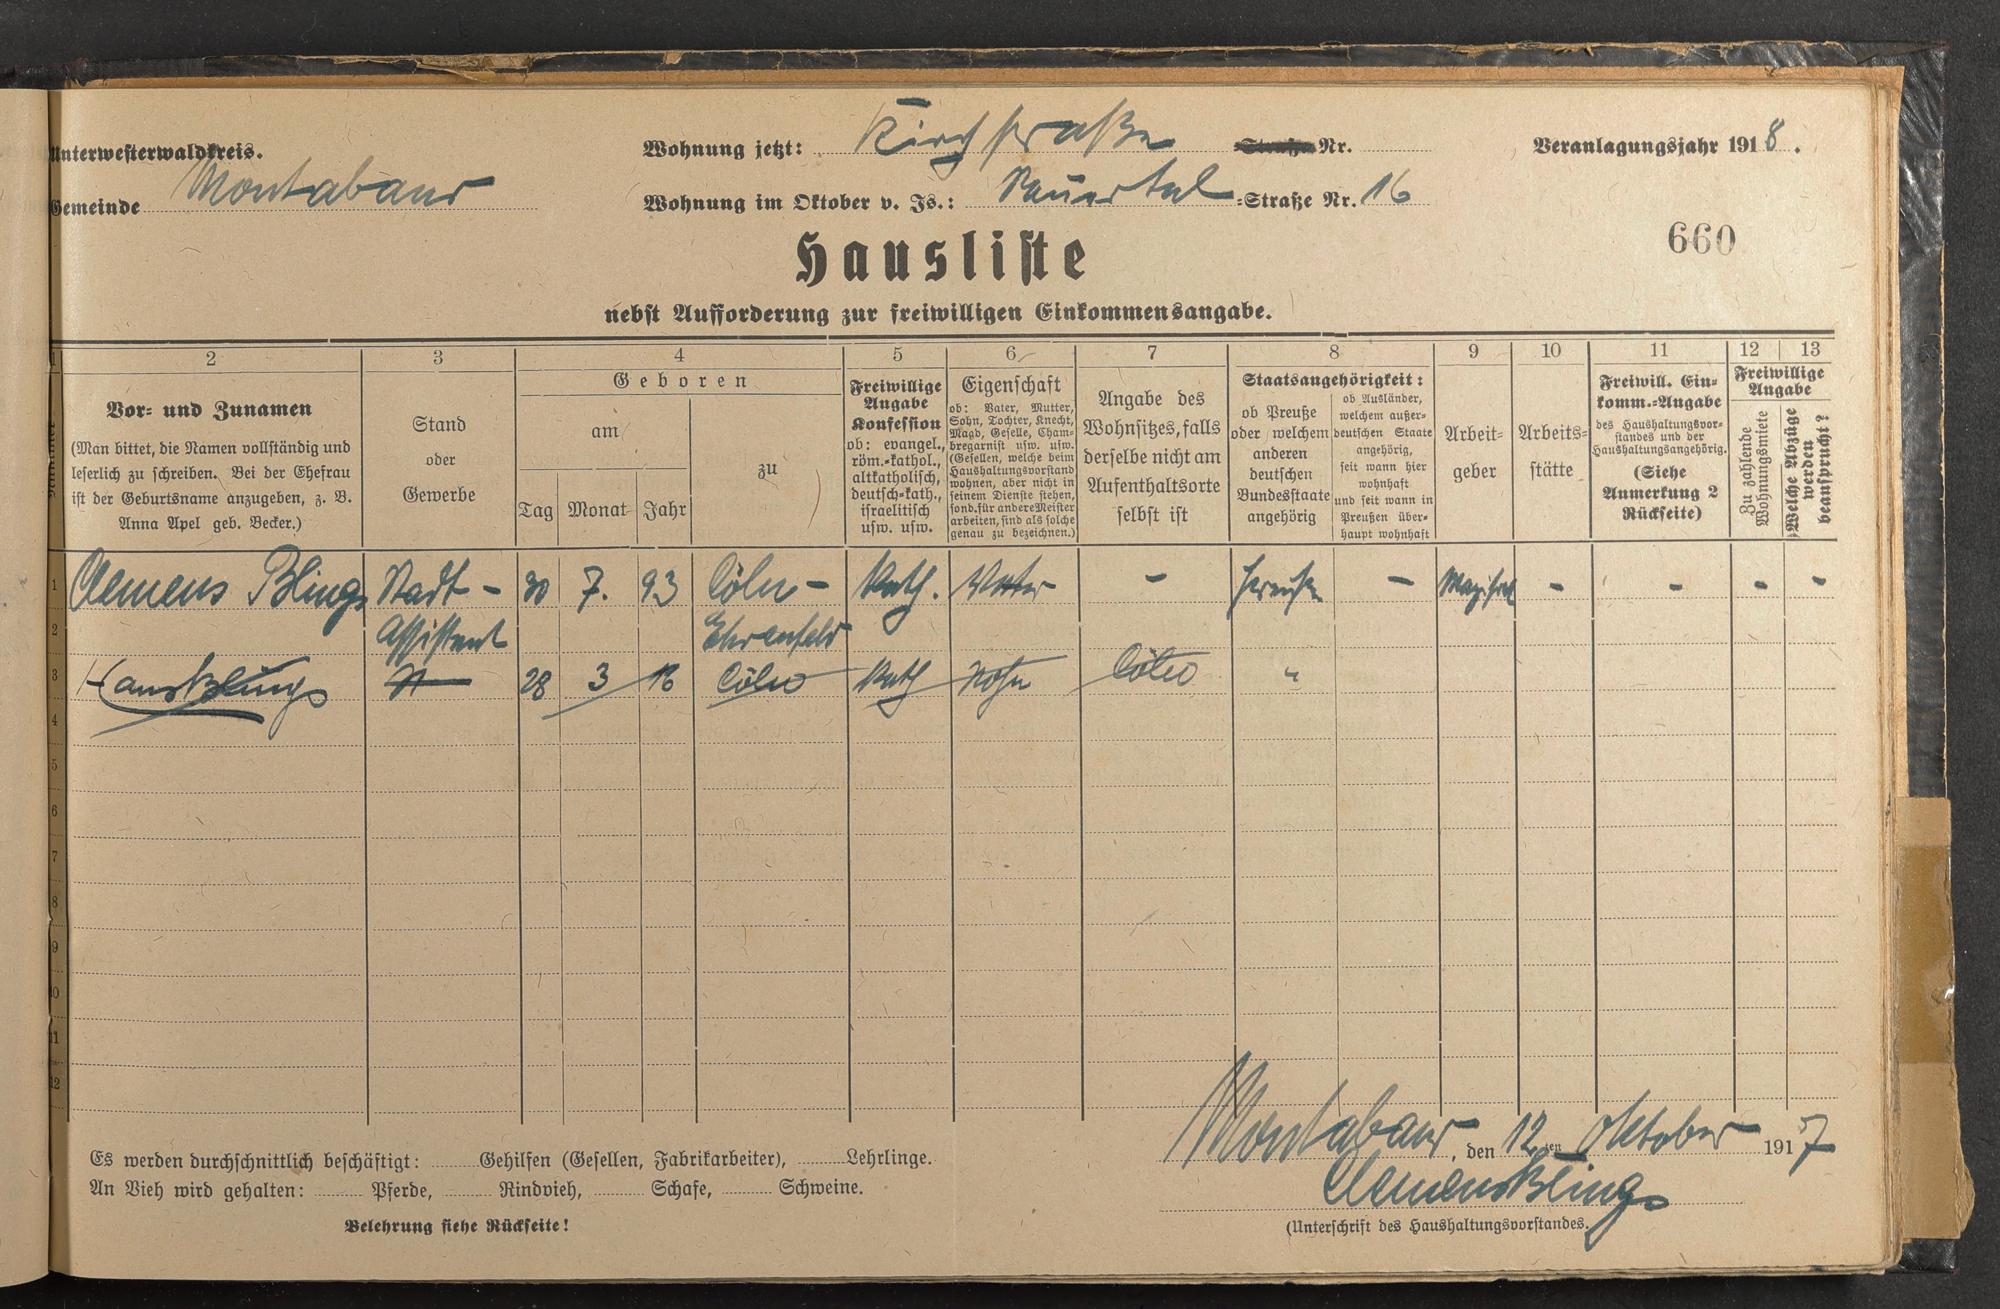 Unterwesterwaldkreis.
Gemeinde Montabaur
Wohnung jetzt: Kirchstraße Straße Nr.
Wohnung im Oktober v. Js.: Sauertal -Straße Nr. 16
Veranlagungsjahr 1918.
660
Hausliste
nebst Aufforderung zur freiwilligen Einkommensangabe.
1 2 3 4 5 6 7 8 9 10 11 12 13
Vor- und Zunamen
(Man bittet, die Namen vollständig und
leserlich zu schreiben. Bei der Ehefrau
ist der Geburtsname anzugeben, z. B.
Anna Apel geb. Becker.)
Stand
oder
Gewerbe
Geboren
am
Tag Monat Jahr
zu
Freiwillige
Angabe
Konfession
ob: evangel.,
röm.-kathol.,
altkatholisch,
deutsch-kath.,
israelitisch
usw. usw.
Eigenschaft
ob: Vater, Mutter,
Sohn, Tochter, Knecht,
Magd, Geselle, Cham-
bregarnist usw. usw.
(Gesellen, welche beim
Haushaltungsvorstand
wohnen, aber nicht in
seinem Dienste stehen,
sond. für andere Meister
arbeiten, sind als solche
genau zu bezeichnen.)
Angabe des
Wohnsitzes, falls
derselbe nicht am
Aufenthaltsorte
selbst ist
Staatsangehörigkeit:
ob Preuße
oder welchem
anderen
deutschen
Bundesstaate
angehörig
ob Ausländer,
welchem außer-
deutschen Staate
angehörig,
seit wann hier
wohnhaft
und seit wann in
Preußen über-
haupt wohnhaft
Arbeit-
geber
Arbeits-
stätte
Freiwill. Ein-
komm.-Angabe
des Haushaltungsvor-
standes und der
Haushaltungsangehörig.
(Siehe
Anmerkung 2
Rückseite)
Freiwillige
Angabe
Zu zahlende
Wohnungsmiete
Welche Abzüge
werden
beansprucht?
1 Clemens Blings Stadt- 30 7. 93 Cöln- Kath. Vater - Preuße - Magistrat - - - -
2 Assistent Ehrenfeld
3 Hans Blings 28 3 16 Cöln Kath Sohn Cöln "
4
5
6
7
8
9
10
11
12
Es werden durchschnittlich beschäftigt: Gehilfen (Gesellen, Fabrikarbeiter), Lehrlinge.
An Vieh wird gehalten: Pferde, Rindvieh, Schafe, Schweine.
Belehrung siehe Rückseite!
Montabaur, den 12ten Oktober 1917
Clemens Blings
(Unterschrift des Haushaltungsvorstandes.